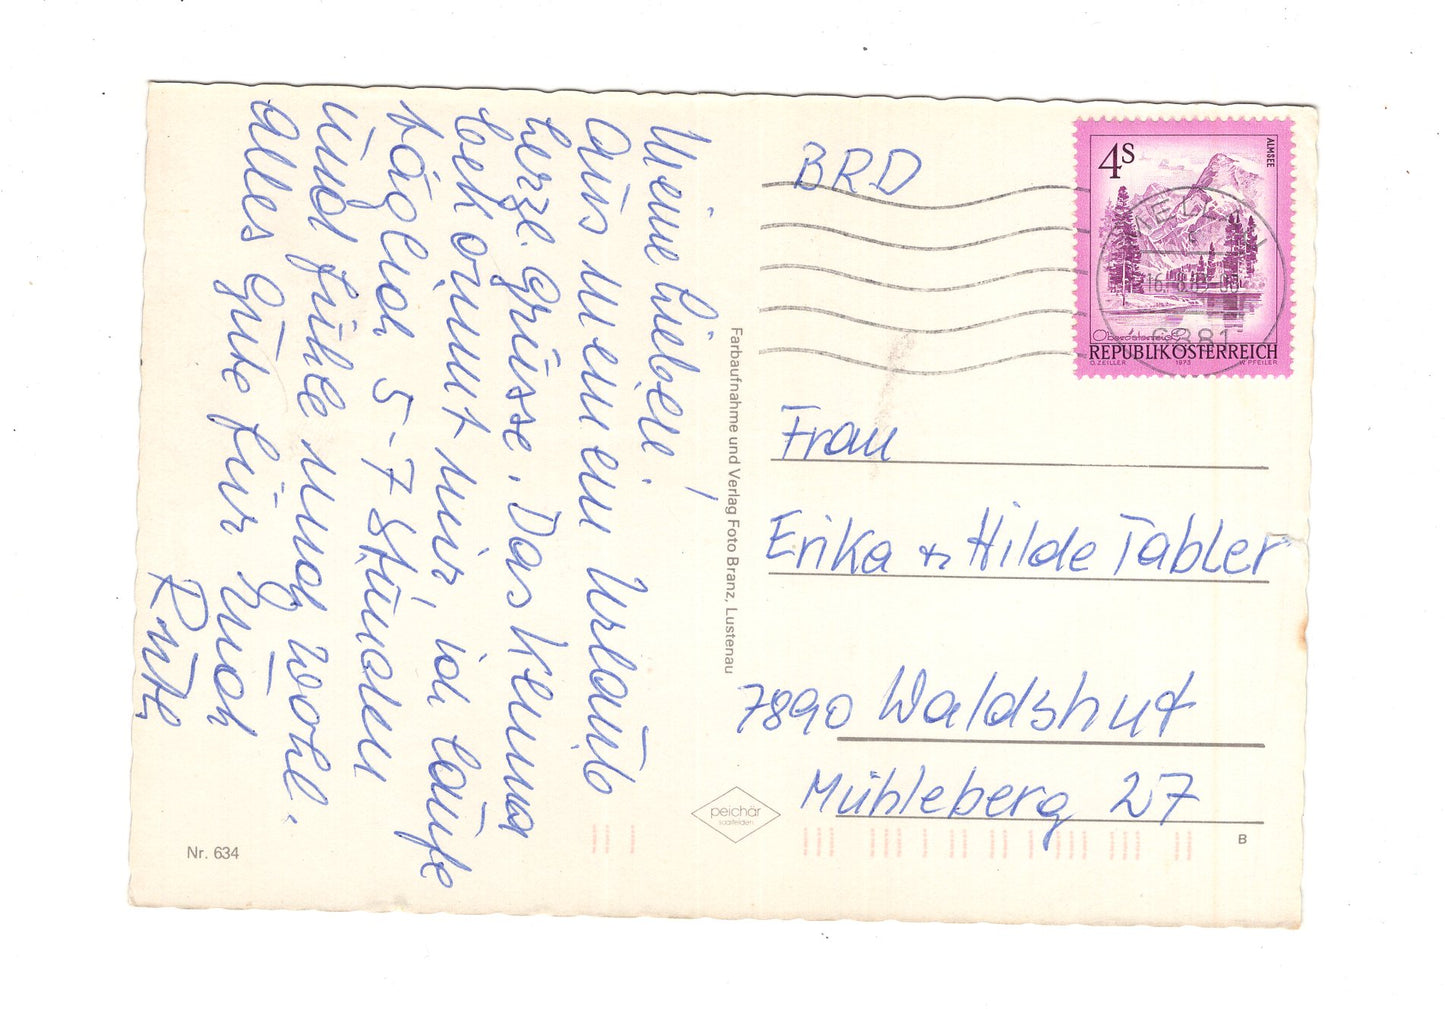 Meine Lieben!
Aus meinem Urlaub
herzl. Grüsse. Das Klima
bekommt mir, ich laufe
täglich 5-7 Stunden
und fühle mich wohl.
Alles Gute für Euch
Ruth
Nr. 634
Farbaufnahme und Verlag Foto Branz, Lustenau
peichär
saalfelden
BRD
4S
ALMSEE
6881
Oberösterreich
REPUBLIK ÖSTERREICH
O. ZEILLER 1973 W. PFEILER
Frau
Erika + Hilde Tabler
7890 Waldshut
Mühleberg 27
B